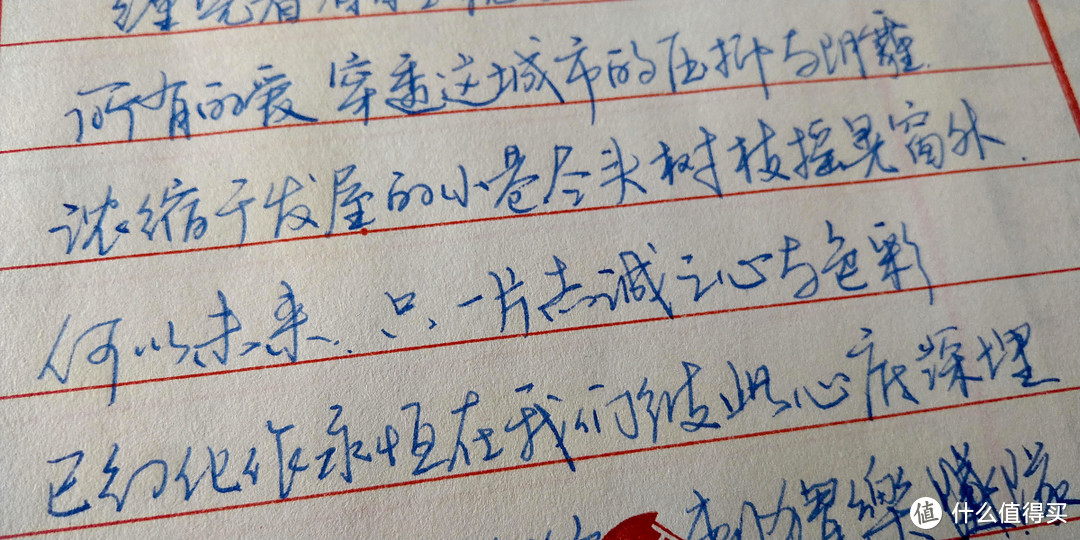 所有的爱 穿透这城市的压抑与阴霾
浓缩于发屋的小巷尽头树枝摇晃窗外.
何以未来.只.一片赤诚之心与色彩
已幻化作永恒在我们彼此心底深埋
值 什么值得买